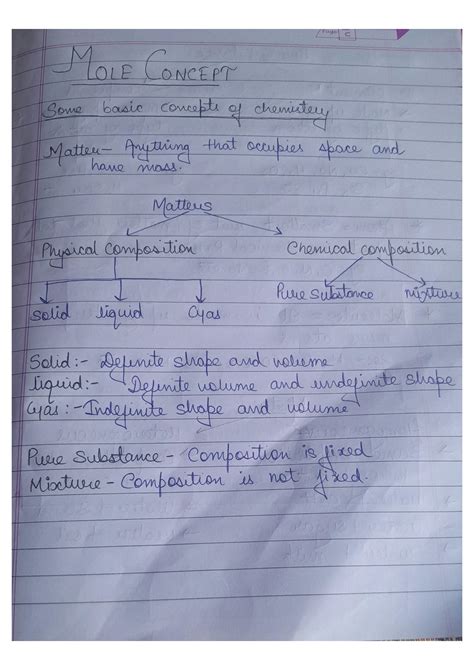 MOLE CONCEPT
Some basic concepts of chemistery
Matter- Anything that occupies space and
have mass.
Matters
Physical composition Chemical compoition
Solid liquid Gas Pure Substance mixture
Solid:- Definite shape and volume
liquid:- Definite volume and undefinite shape
Gas:- Indefinite shape and volume
Pure Substance - Composition is fixed
Mixture - Composition is not fixed.